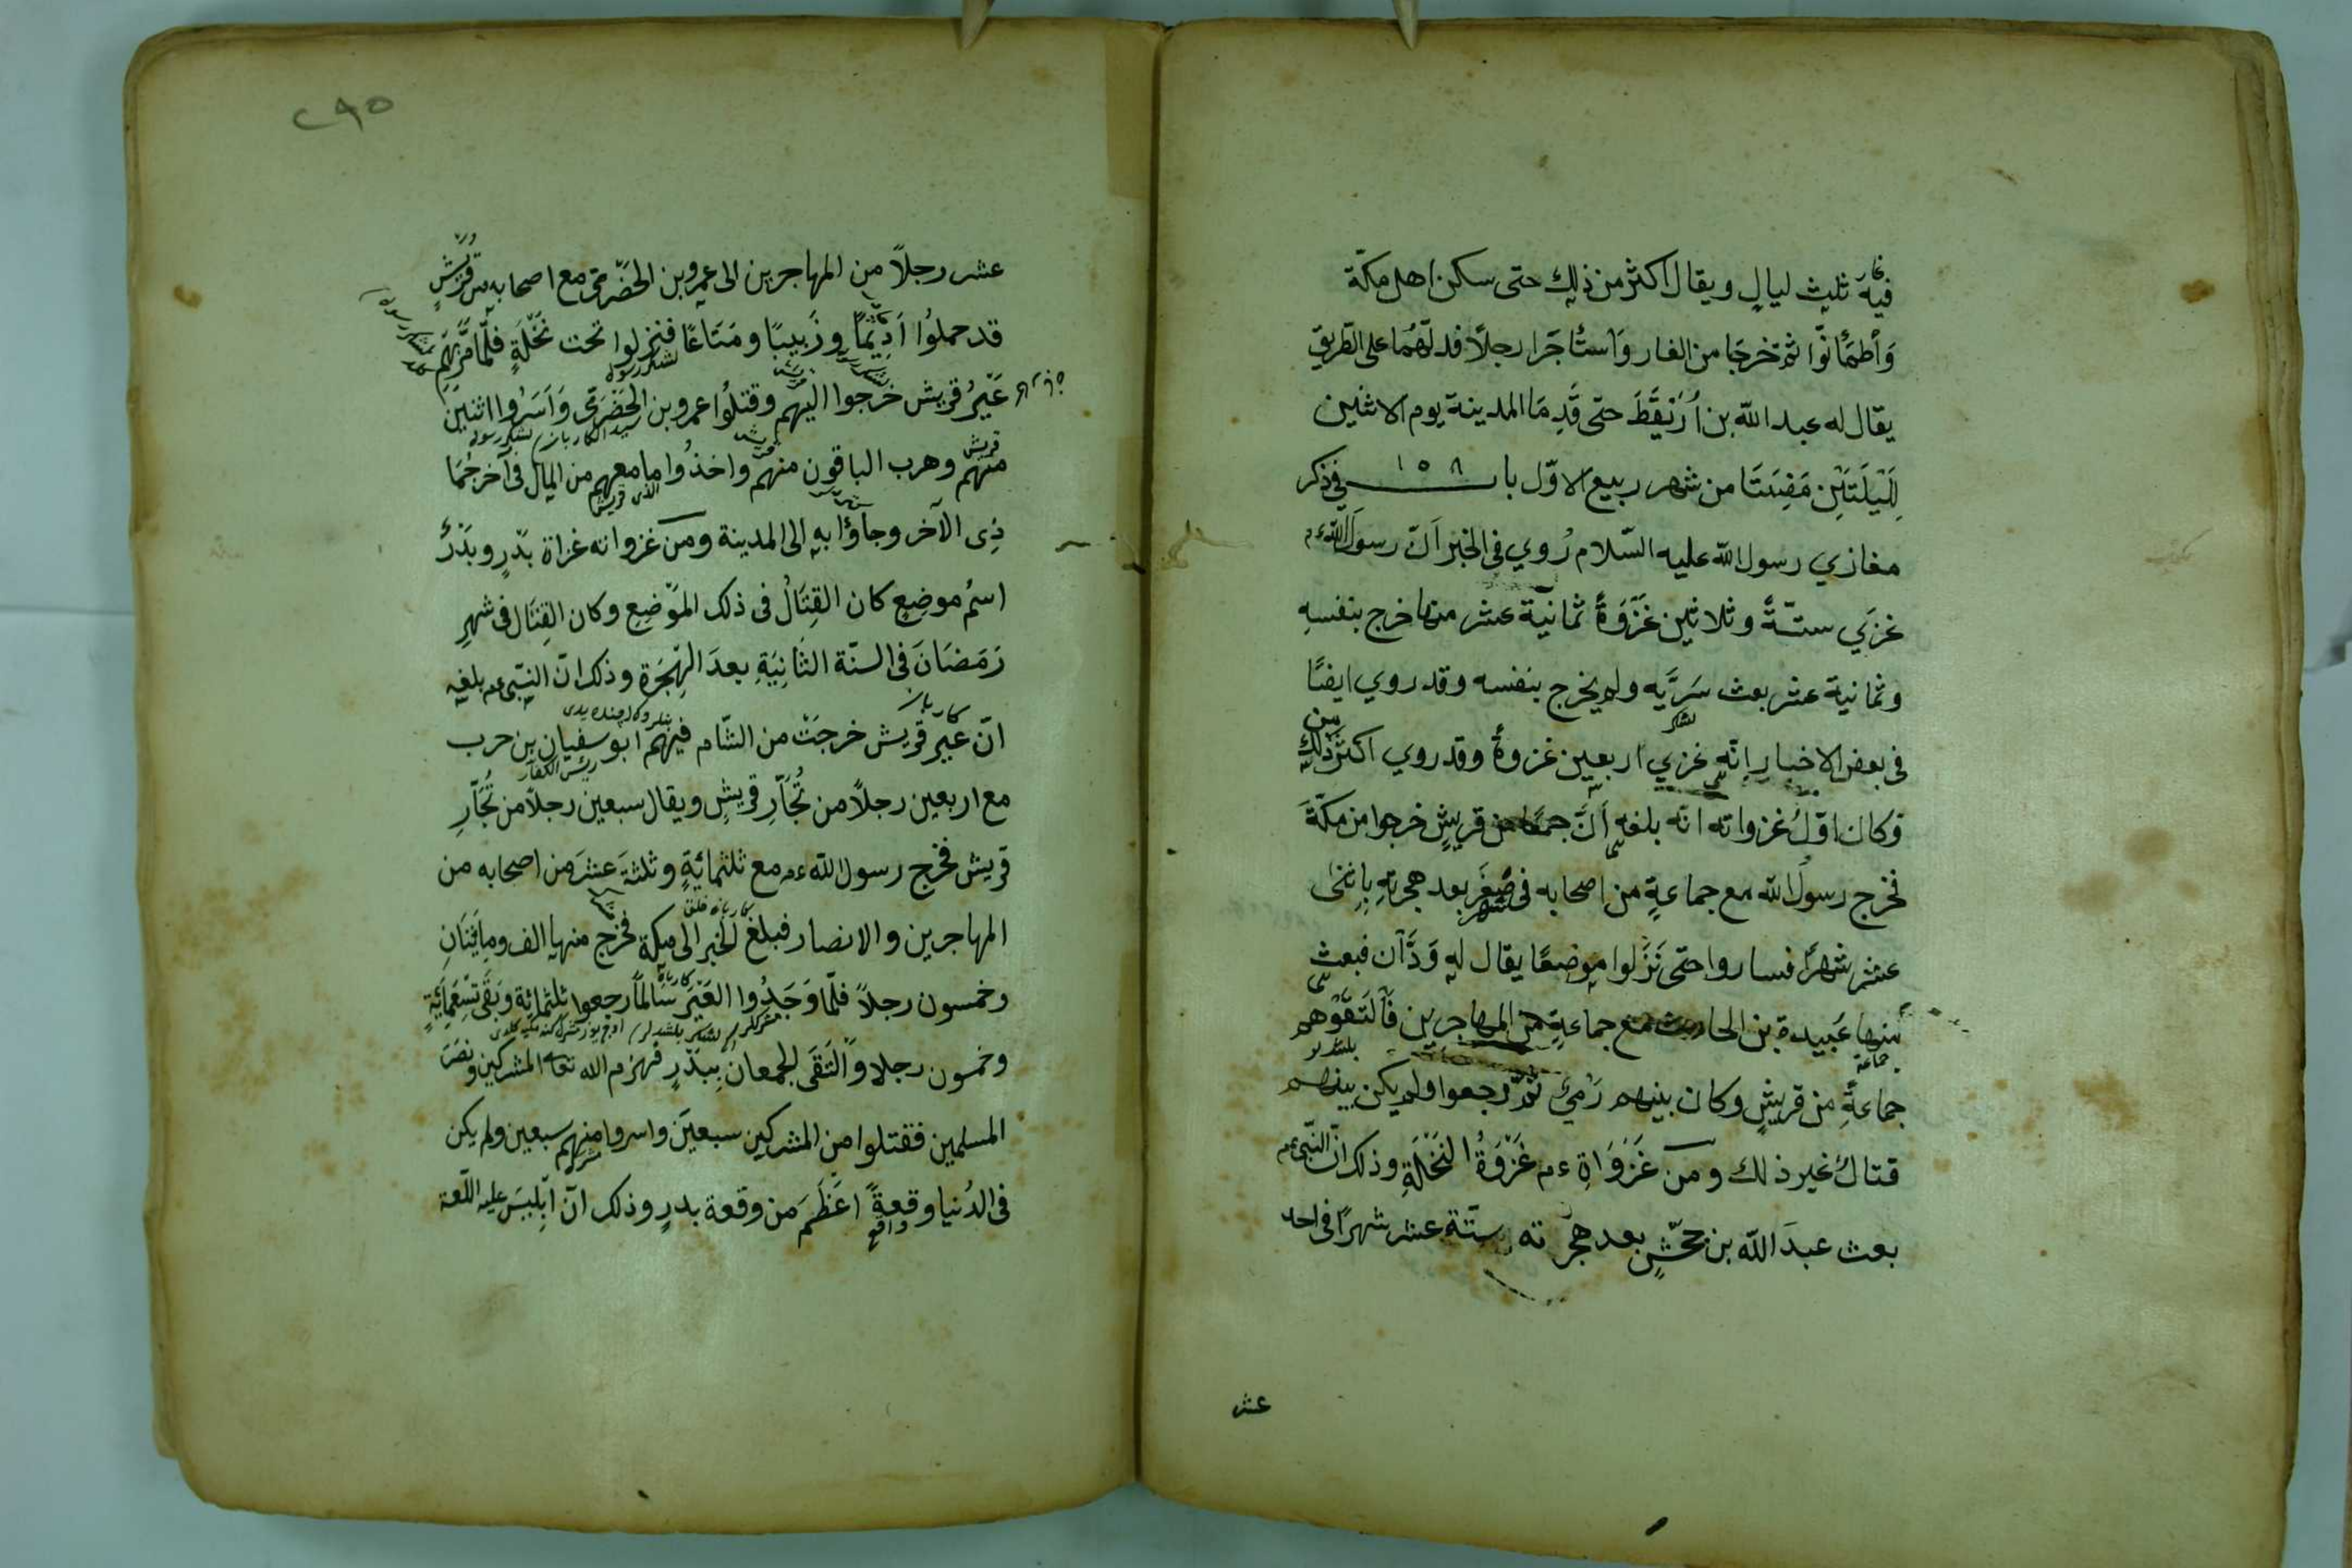 فيه ثليث ليالٍ ويقال اكثر من ذلك حتى سكن اهل مكّة
وَأطمَٔانوّا ثمّ خرجَا من الغار وَاستٔاجَرا رجلاً فدلّهُمَا على الطّريق
يقال له عبد الله بن أُرَيقَطَ حتّى قَدِمَا المدينة يوم الاثنين
لِلَيْلَتَيْنِ مَضِيَتَا من شهر ربيع الاوّل باب ١٥٨ فى ذكر
مغازي رسول الله عليه السّلام رُوي فى الخبر اَنّ رسول الله ءم
غزي ستّةً وثلاثين غَزْوَةً ثمانية عشر منها خرج بنفسهِ
وثمانية عشر بعث سَرِيَّه ولم يخرج بنفسه وقد روي ايضًا
لشكر
من
فى بعض الاخبارِ انّه غزي اربعين غزوةً وقد روي اكثر ذلك
وَكان اوّلُ غزواته انّه بلغه اَنَّ جمعًا من قريشٍ خرجوا من مكّةَ
فخرج رسولُ الله مع جماعةٍ من اصحابه فى صَفَرٍ بعد هجرتهِ باثنى
شهر
عشر شهرًا فساروا حتى نَزَلوا موضعًا يقال له وَدَّان فبعث
منها عُبيدة بن الحارث مع جماعةٍ من المهاجرين فَالتَقَوْهم
جماعة
جماعةً من قريشٍ وكان بينهم رَمْيٌ ثمّ رجعوا ولم يكن بينهم
قتالٌ غير ذلك ومن غَزَوَاةِ ءم غَزْوَةُ النَخْلَةِ وذكر انّ النّبى ءم
بعث عبدَ الله بن جَحْشٍ بعد هجرته ستّة عشر شهرًا فى احد
عشر
٢٩٥
عشر رجلاً من المهاجرين الى عمرو بن الحَضْرَمى مع اصحابه من قريشٍ
قد حملُوا اَدِيمًا وزَبيبًا ومَتَاعًا فنزلوا تحت نَخْلَةٍ فلمّا مرَّ بهم
لشكر رسول
عَيْرُ قريش خرجوا اليهم وقتلُوا عمرو بن الحَضْرَمى وَاَسَرُوا اثنين
قريش
منهم وهرب الباقون منهم واخذُوا ما معهم من المال فى آخر جُمَا
ذِى الآخر وجاؤا به الى المدينة ومن غزواته غزاة بدْرٍ وبَدْرٌ
اسمُ موضعٍ كان القِتَالُ فى ذلك المَوْضِعِ وكان القِتَال فى شهرِ
رَمَضَانَ فى السنّة الثانِيَةِ بعدَ الهِجْرَة وذكر انّ النبّى ءم بلغه
انّ عير قريش خرجَتْ من الشّام فيهم ابو سفيان بن حرب
رئس الكفار
مع اربعين رجلاً من تُجّارِ قريشٍ ويقال سبعين رجلاً من تُجّارِ
قريش فخرج رسول الله ءم مع ثلثمائةٍ وثلثةَ عشرَ من اصحابه من
المهاجرين والانصار فبلغ الخبر الى مكة فخرج منها الف ومائتان
وخمسون رجلاً فلمّا وَجَدُوا العَيْرَ سَالماً رجعوا ثلثمائة وبَقَى تسعمائةٍ
وخمسون رجلا وَالْتَقَى الجمعان ببَدْرٍ فهزم الله تعه المشركين ونَصَرَ
المسلمين فقتلوا من المشركين سبعينَ واسروا منهم سبعين ولم يكن
فى الدُنيا وقعةً اعَظَمَ من وقعة بدرٍ وذكر انّ اِبْليسَ عليه اللّعنة